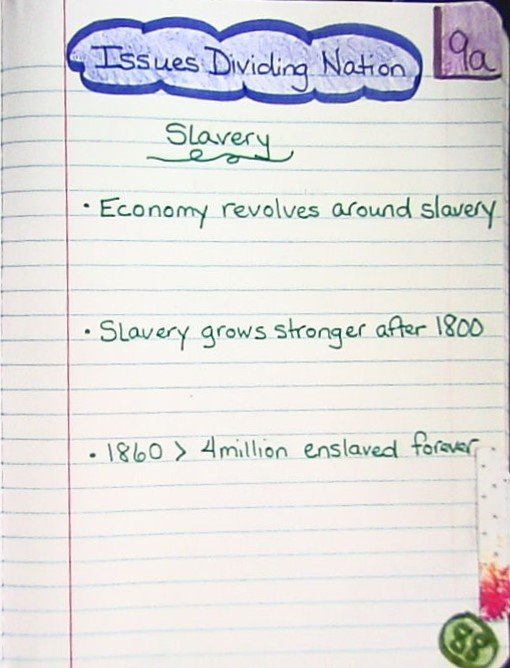 Issues Dividing Nation
9a
Slavery
• Economy revolves around slavery
• Slavery grows stronger after 1800
• 1860 > 4million enslaved forever
88